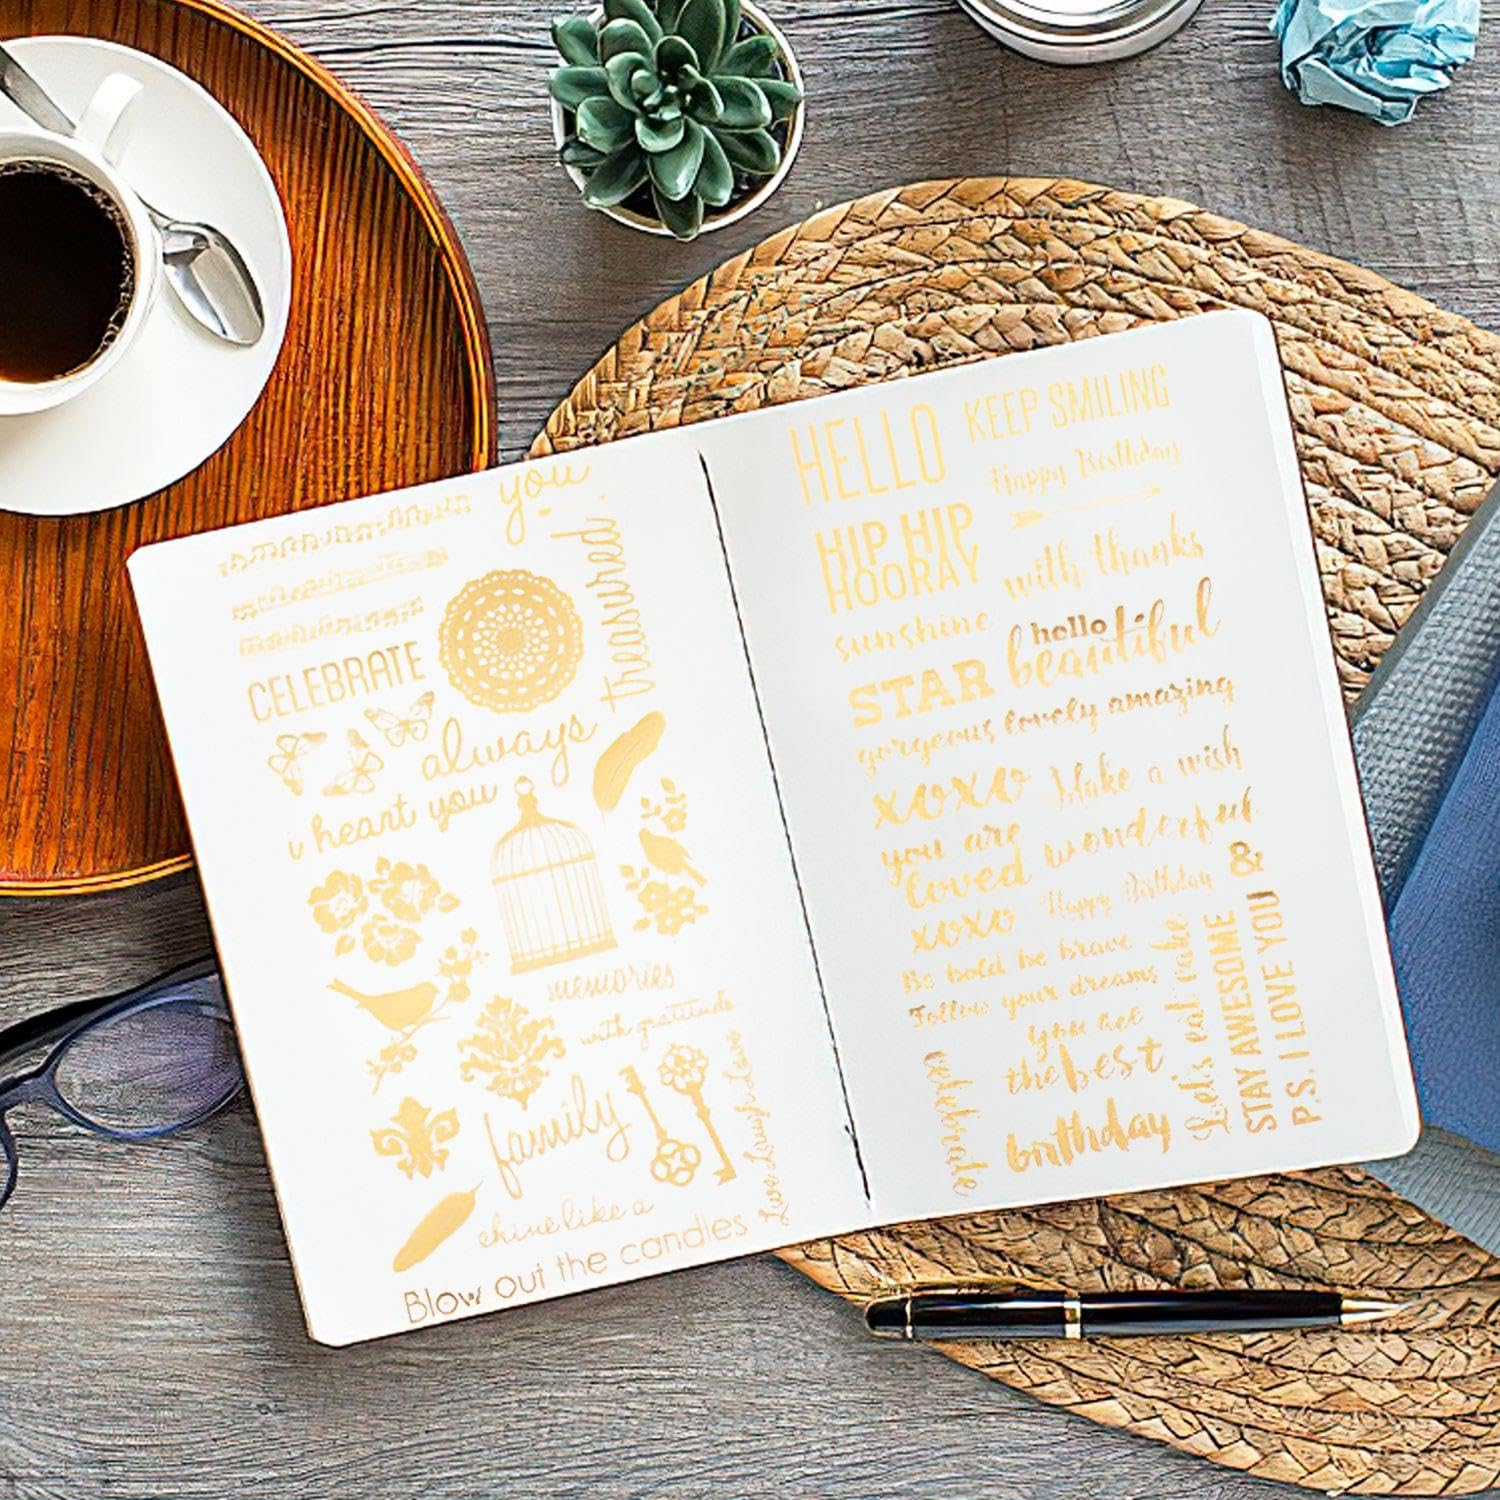 you
treasured.
CELEBRATE
always
i heart you
memories
with gratitude
family
Live Laugh Love
shine like a
Blow out the candles
HELLO
KEEP SMILING
Happy Birthday
HIP HIP
HOORAY
with thanks
sunshine
hello
beautiful
STAR
gorgeous lovely amazing
xoxo
Make a wish
you are
loved
wonderful
xoxo
Happy Birthday
&
Be bold be brave
Follow your dreams
you are
the best
celebrate
birthday
Let's eat cake
STAY AWESOME
P.S. I LOVE YOU